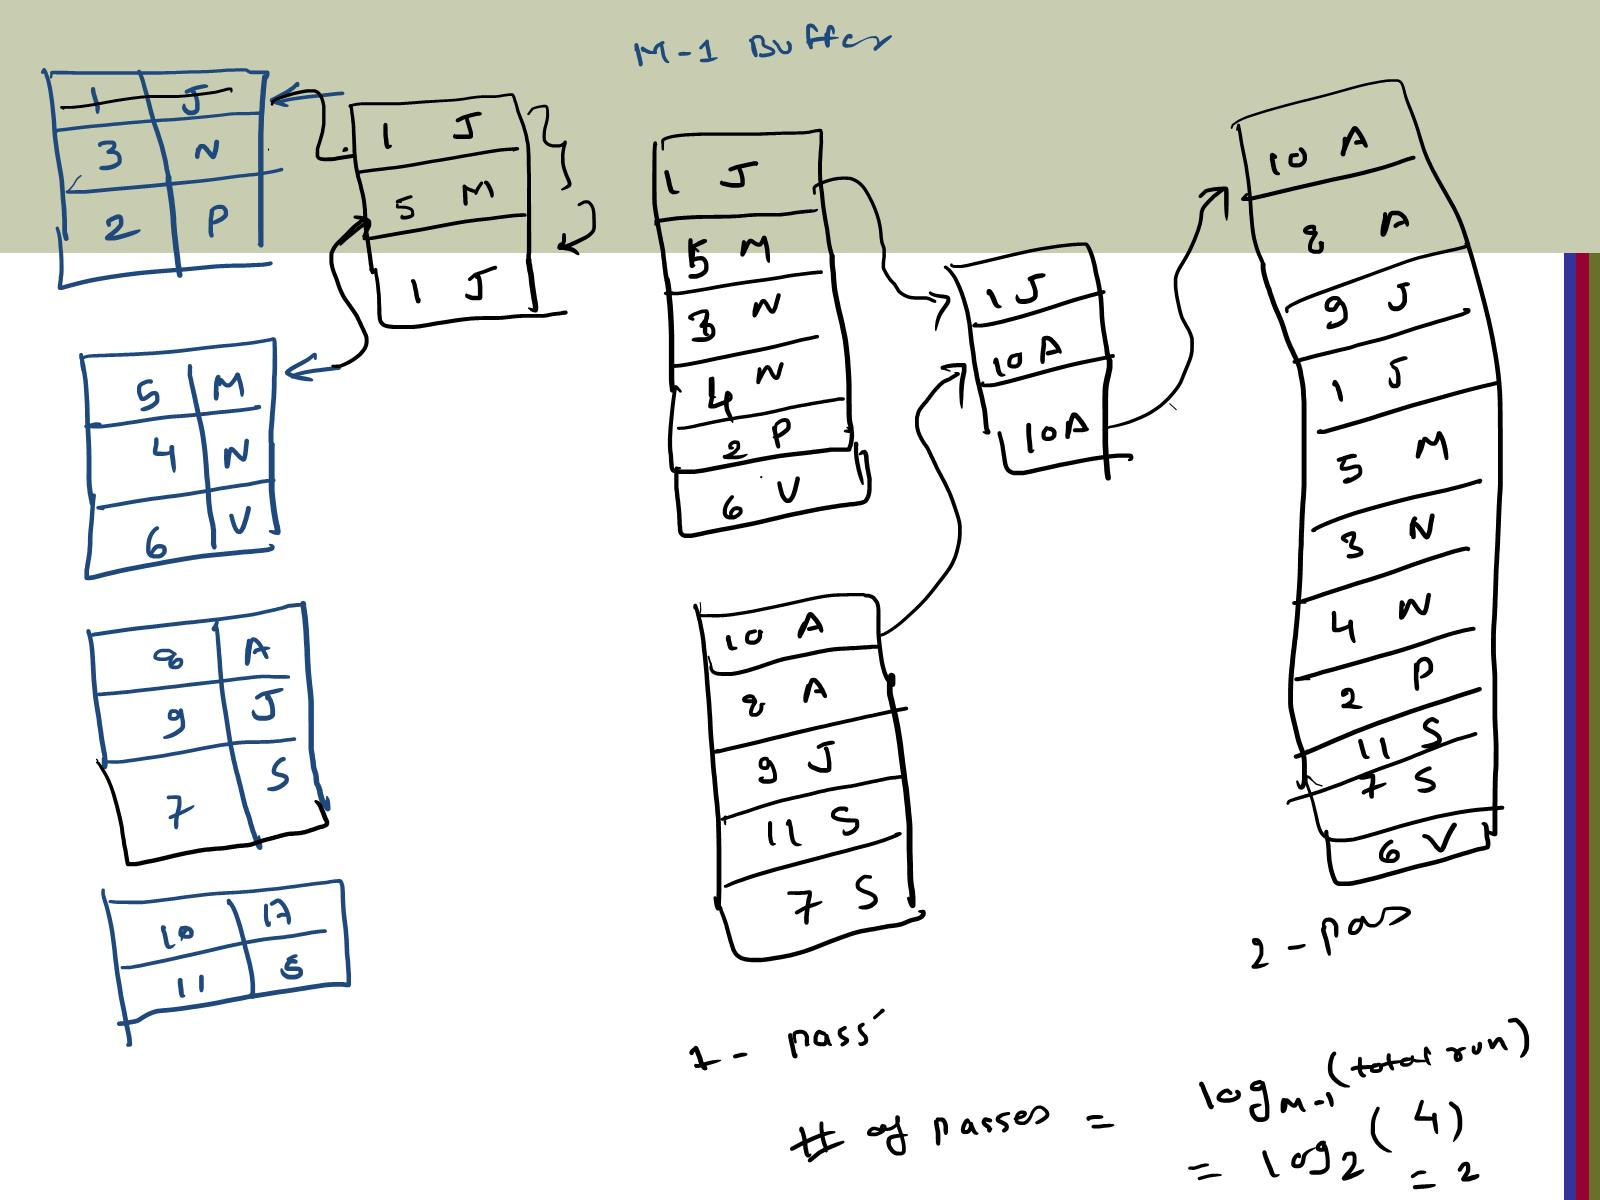 M-1 Buffer
1 J
3 N
2 P
5 M
4 N
6 V
8 A
9 J
7 S
10 A
11 S
1 J
5 M
1 J
1 J
5 M
3 N
4 N
2 P
6 V
10 A
8 A
9 J
11 S
7 S
1 - pass
1 J
10 A
10 A
10 A
8 A
9 J
1 J
5 M
3 N
4 N
2 P
11 S
7 S
6 V
2 - pass
# of passes = log M-1 (total run)
= log 2 (4)
= 2